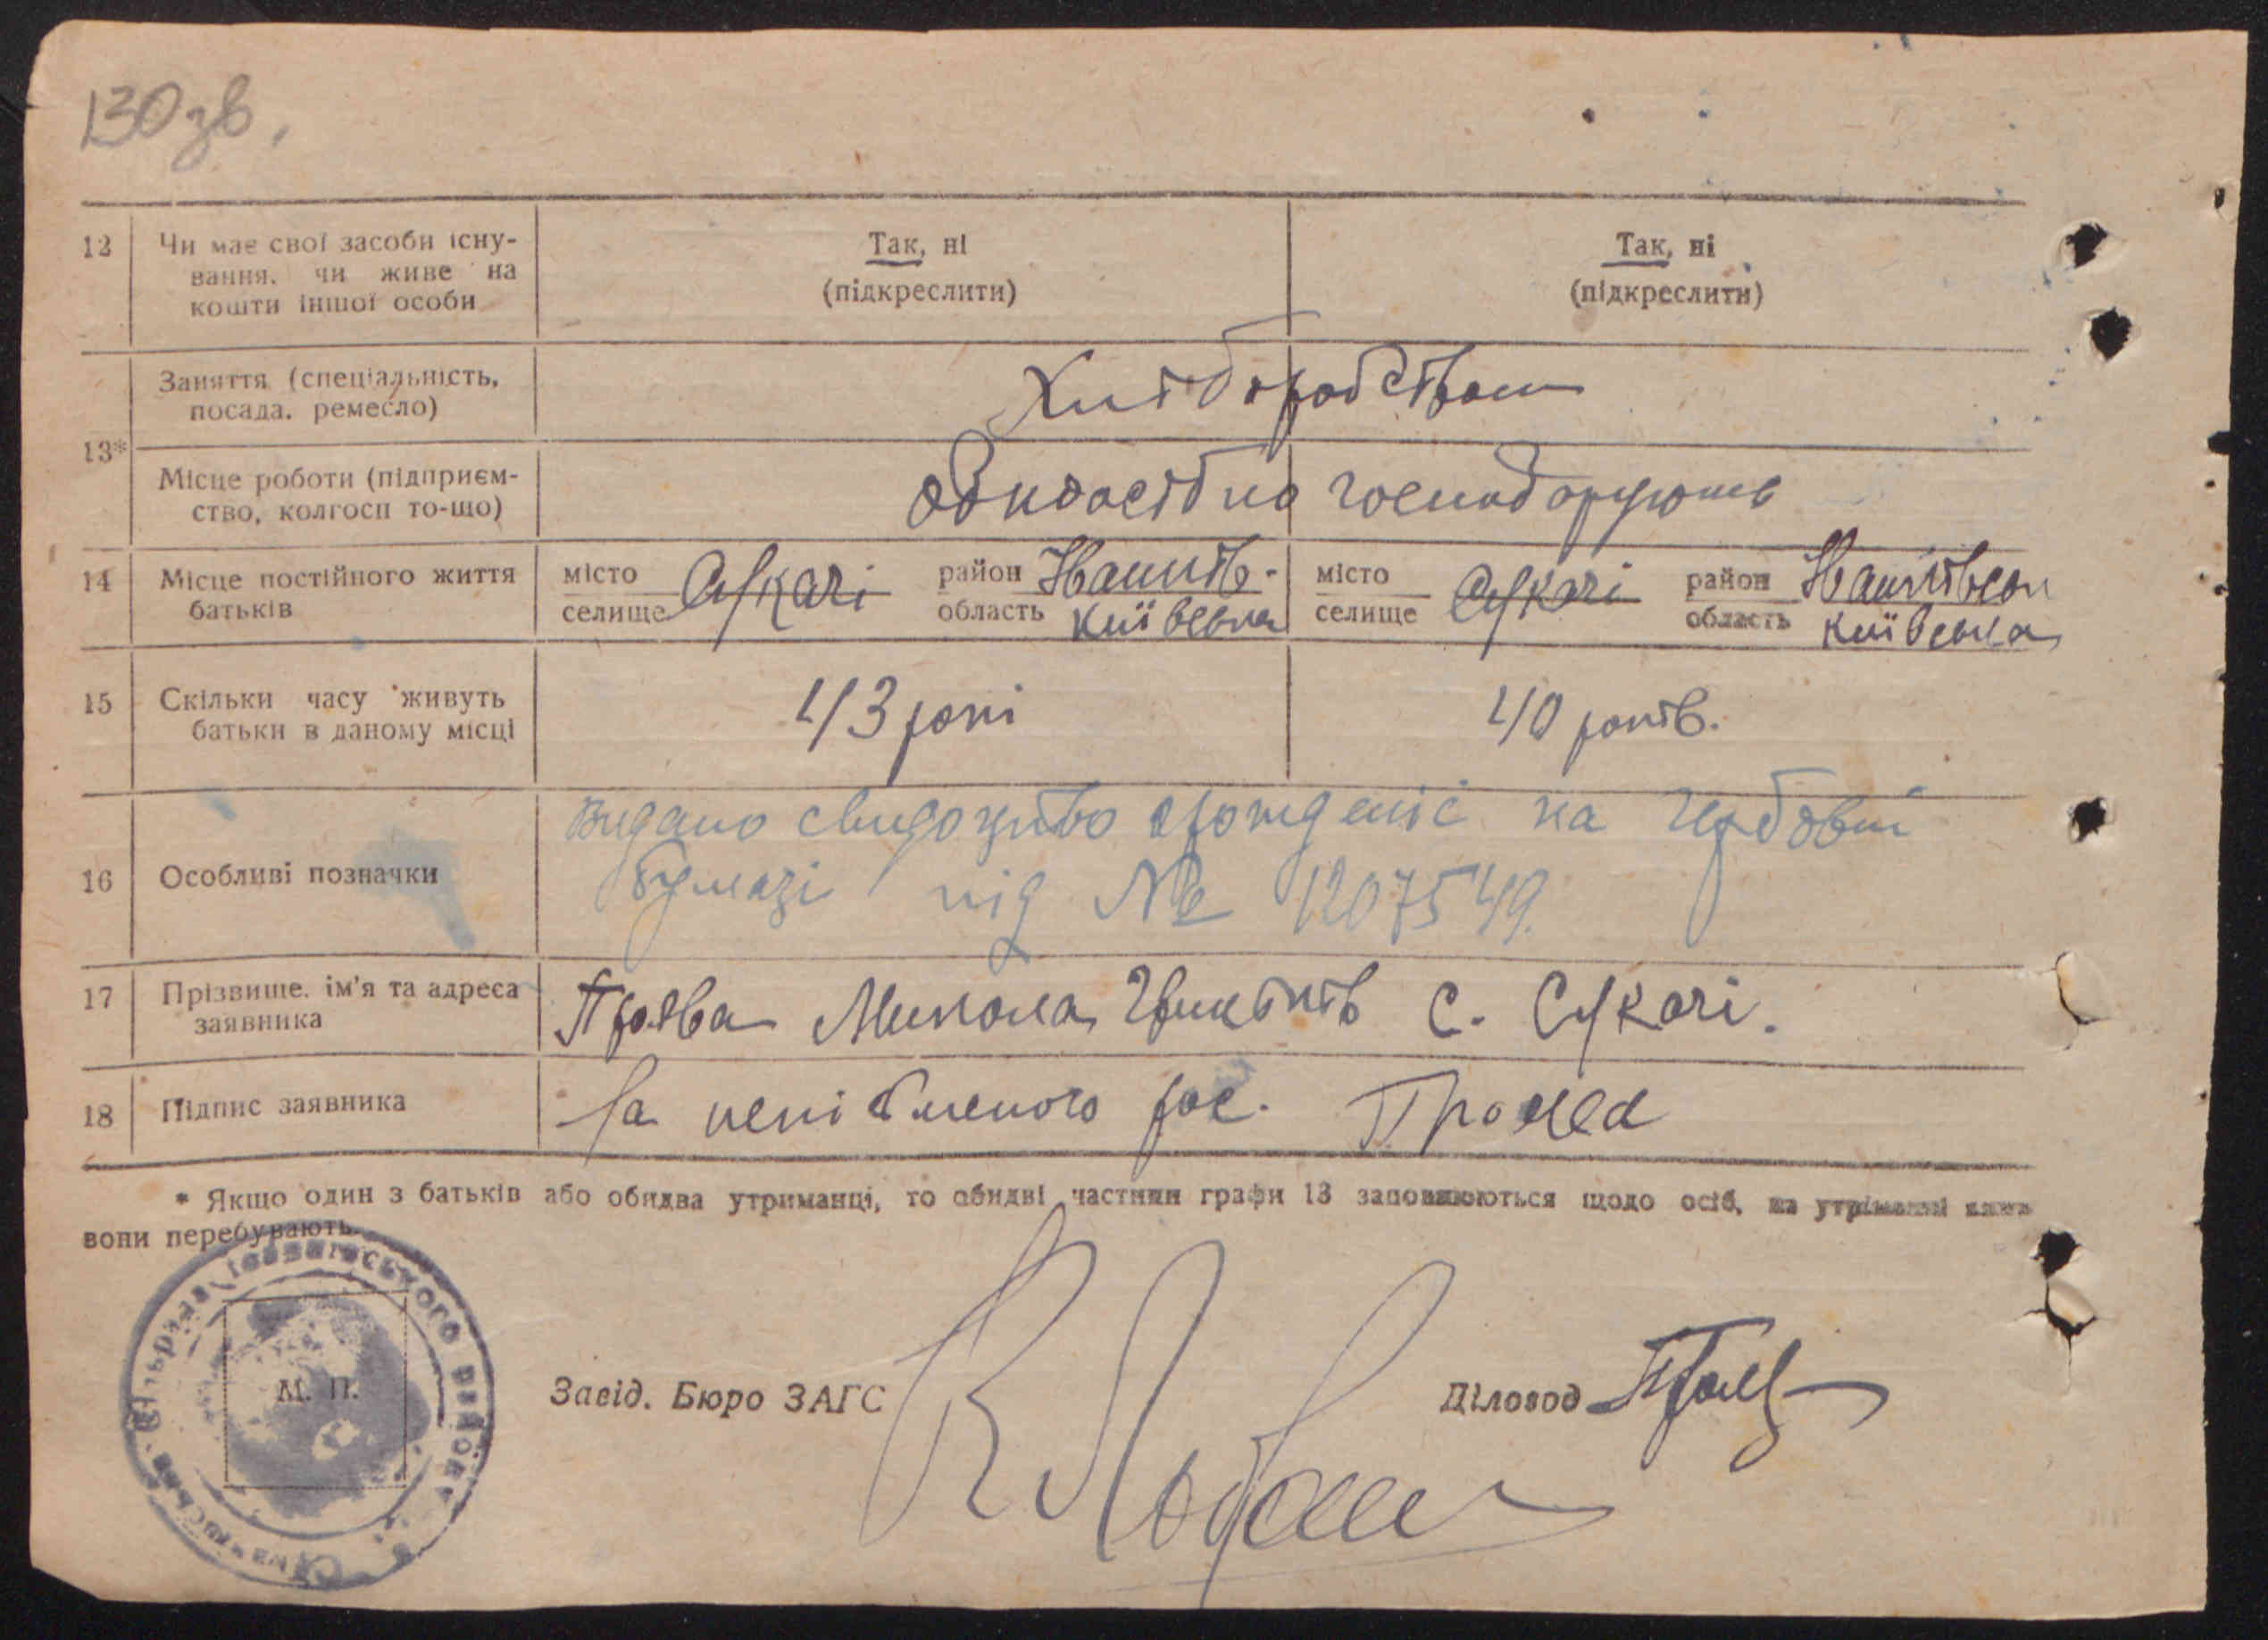 130 зв.
12 Чи має свої засоби існу- Так, ні Так, ні
вання, чи живе на (підкреслити) (підкреслити)
кошти іншої особи
13* Заняття (спеціальність, Хліборобством
посада, ремесло)
Місце роботи (підприєм- одноосібно господарують
ство, колгосп то-що)
14 Місце постійного життя місто Сукачі район місто Сукачі район
батьків селище область київська селище область київська
15 Скільки часу живуть 43 роки 40 років.
батьки в даному місці
16 Особливі позначки видано свидоцтво на гербовій
бумазі під № 1207549.
17 Прізвище, ім'я та адреса Микола с. Сукачі.
заявника
18 Підпис заявника За рос.
* Якщо один з батьків або обидва утриманці, то обидві частини графи 13 заповнюються щодо осіб, на утриманні яких
вони перебувають.
М. П.
Завід. Бюро ЗАГС Діловод